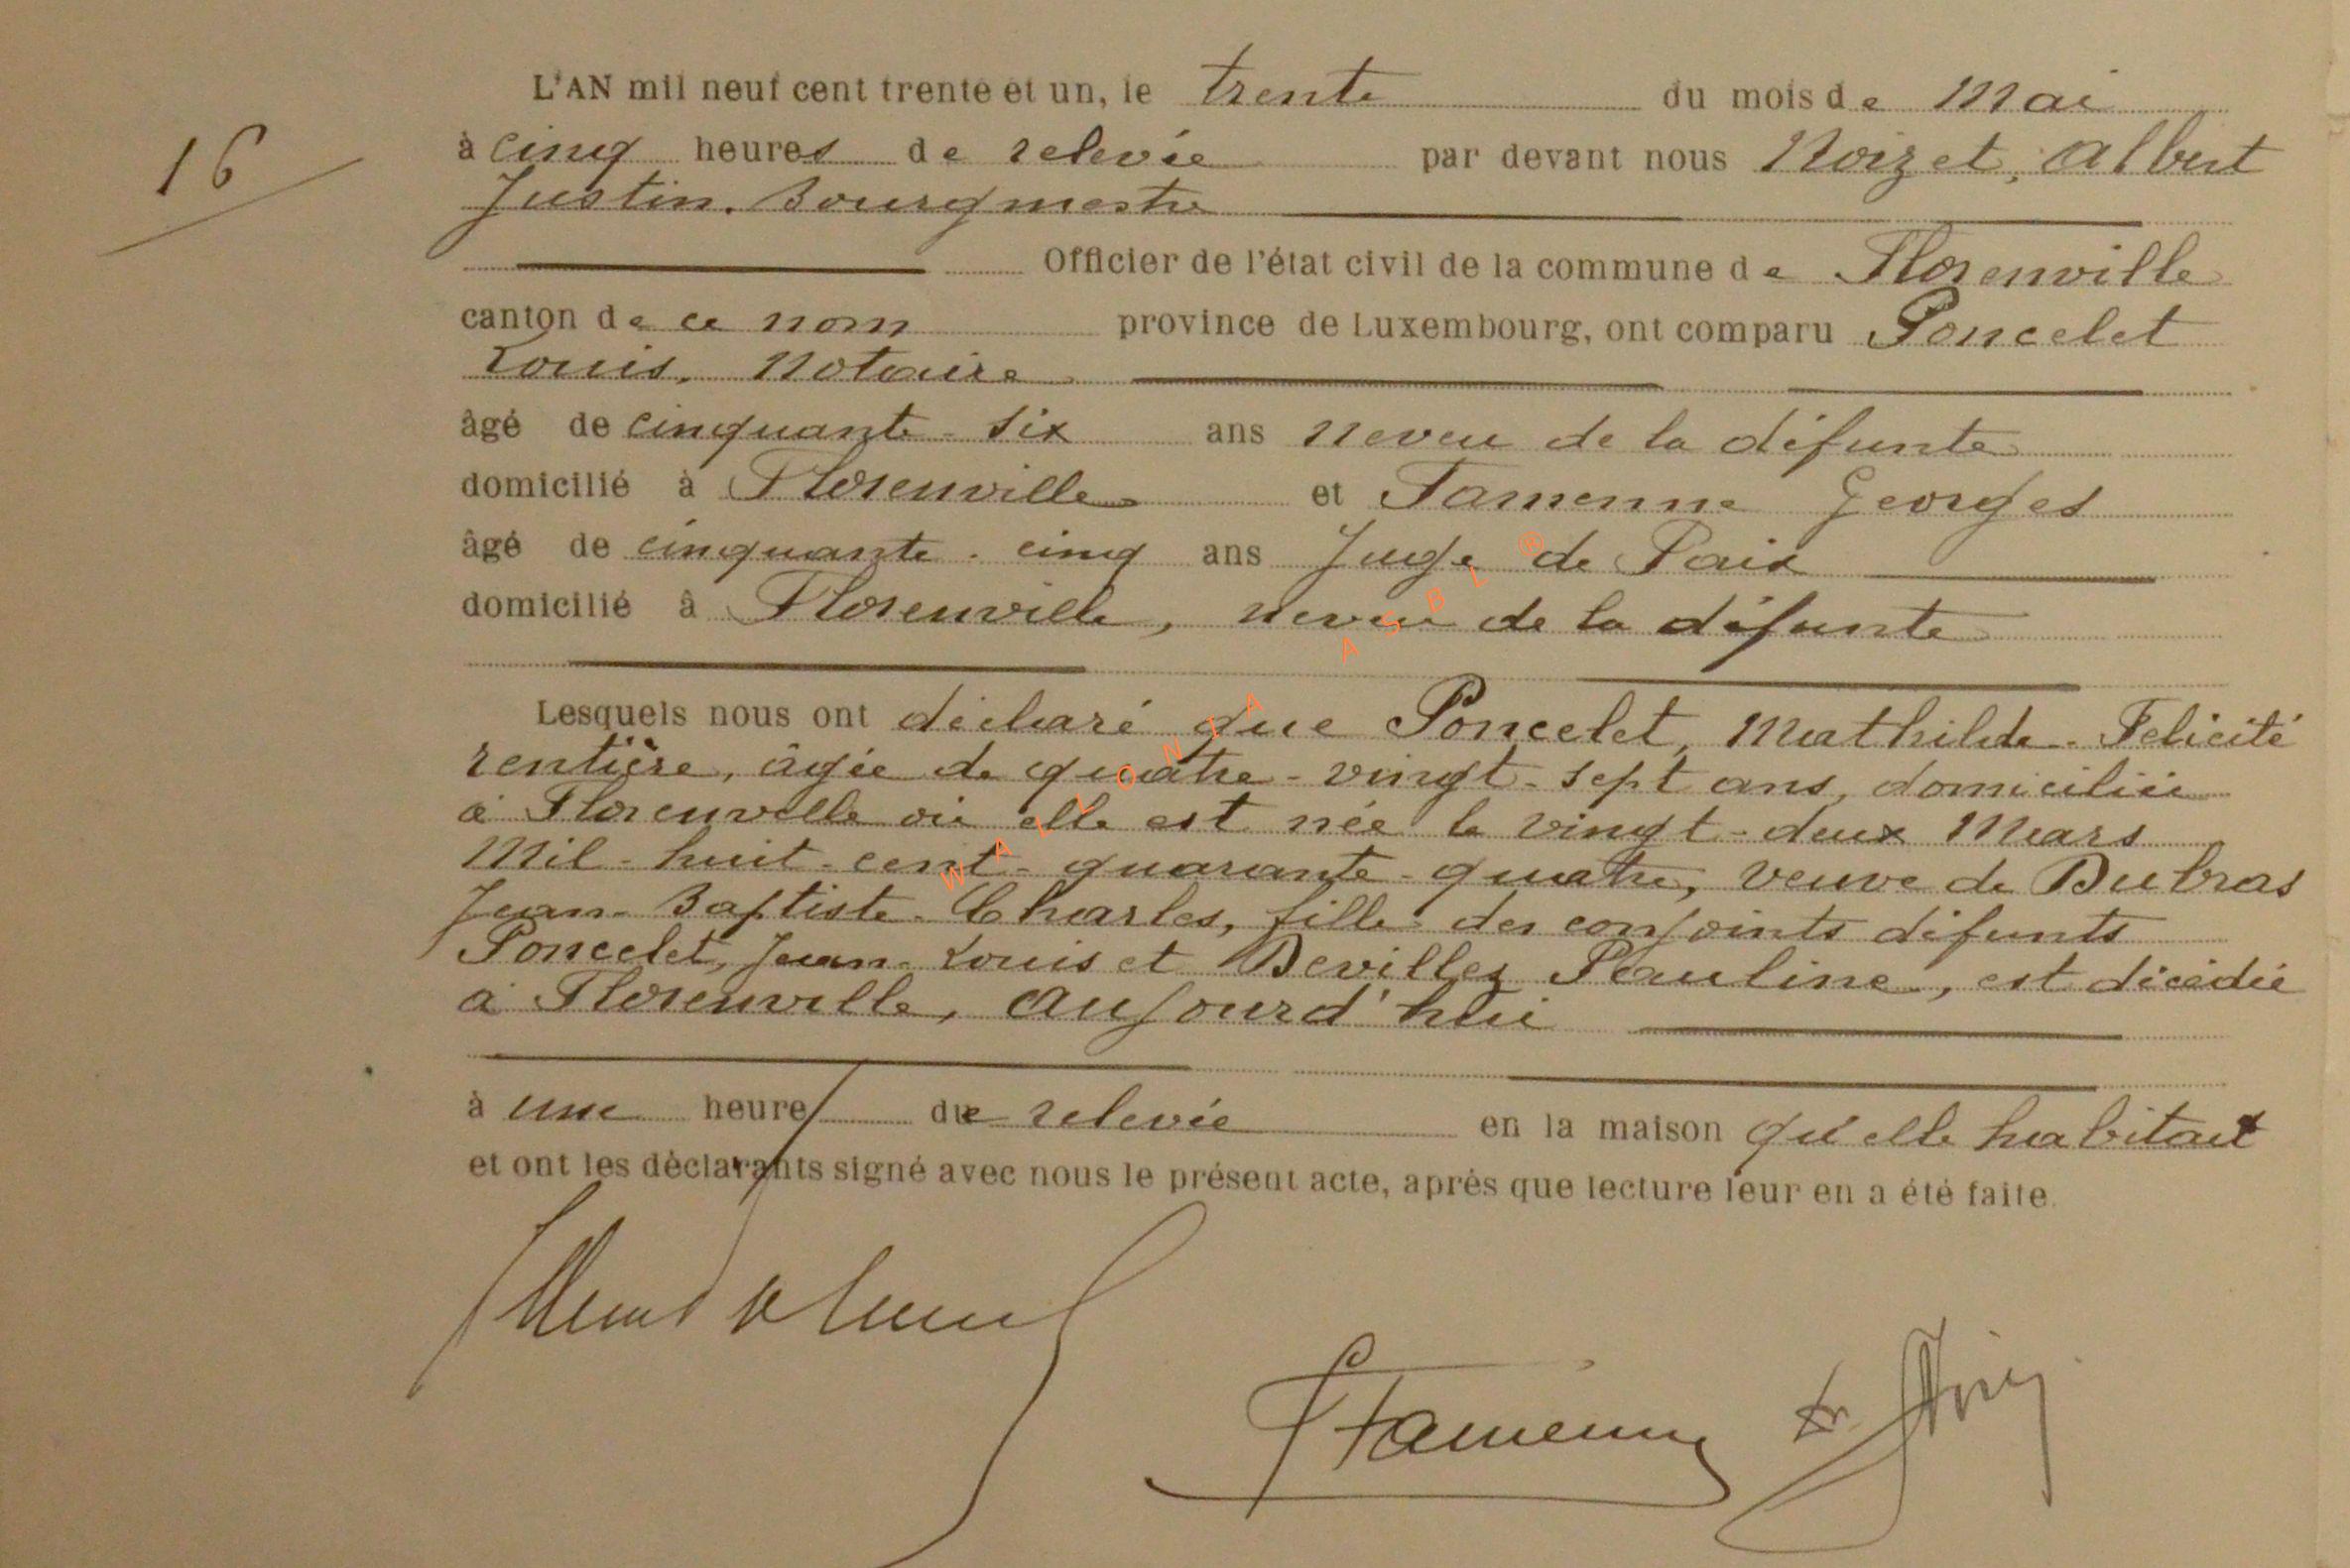 L'AN mil neuf cent trente et un, le trente du mois de Mai
16
à cinq heures de relevée par devant nous Noizet, Albert
Justin. Bourgmestre
Officier de l'état civil de la commune de Florenville
canton de ce nom province de Luxembourg, ont comparu Poncelet
Louis, Notaire
âgé de cinquante-six ans neveu de la défunte
domicilié à Florenville et Famenne Georges
âgé de cinquante-cinq ans Juge de Paix
domicilié à Florenville, neveu de la défunte
Lesquels nous ont déclaré que Poncelet, Mathilde-Felicité
rentière, âgée de quatre-vingt-sept ans, domiciliée
à Florenville où elle est née le vingt-deux Mars
Mil-huit-cent-quarante-quatre, veuve de Dubras
Jean-Baptiste-Charles, fille des conjoints défunts
Poncelet, Jean-Louis et Devillez Pauline, est décédée
à Florenville, aujourd'hui
à une heure de relevée en la maison qu'elle habitait
et ont les déclarants signé avec nous le présent acte, après que lecture leur en a été faite.
Famenne
WALLONIA ASBL ®